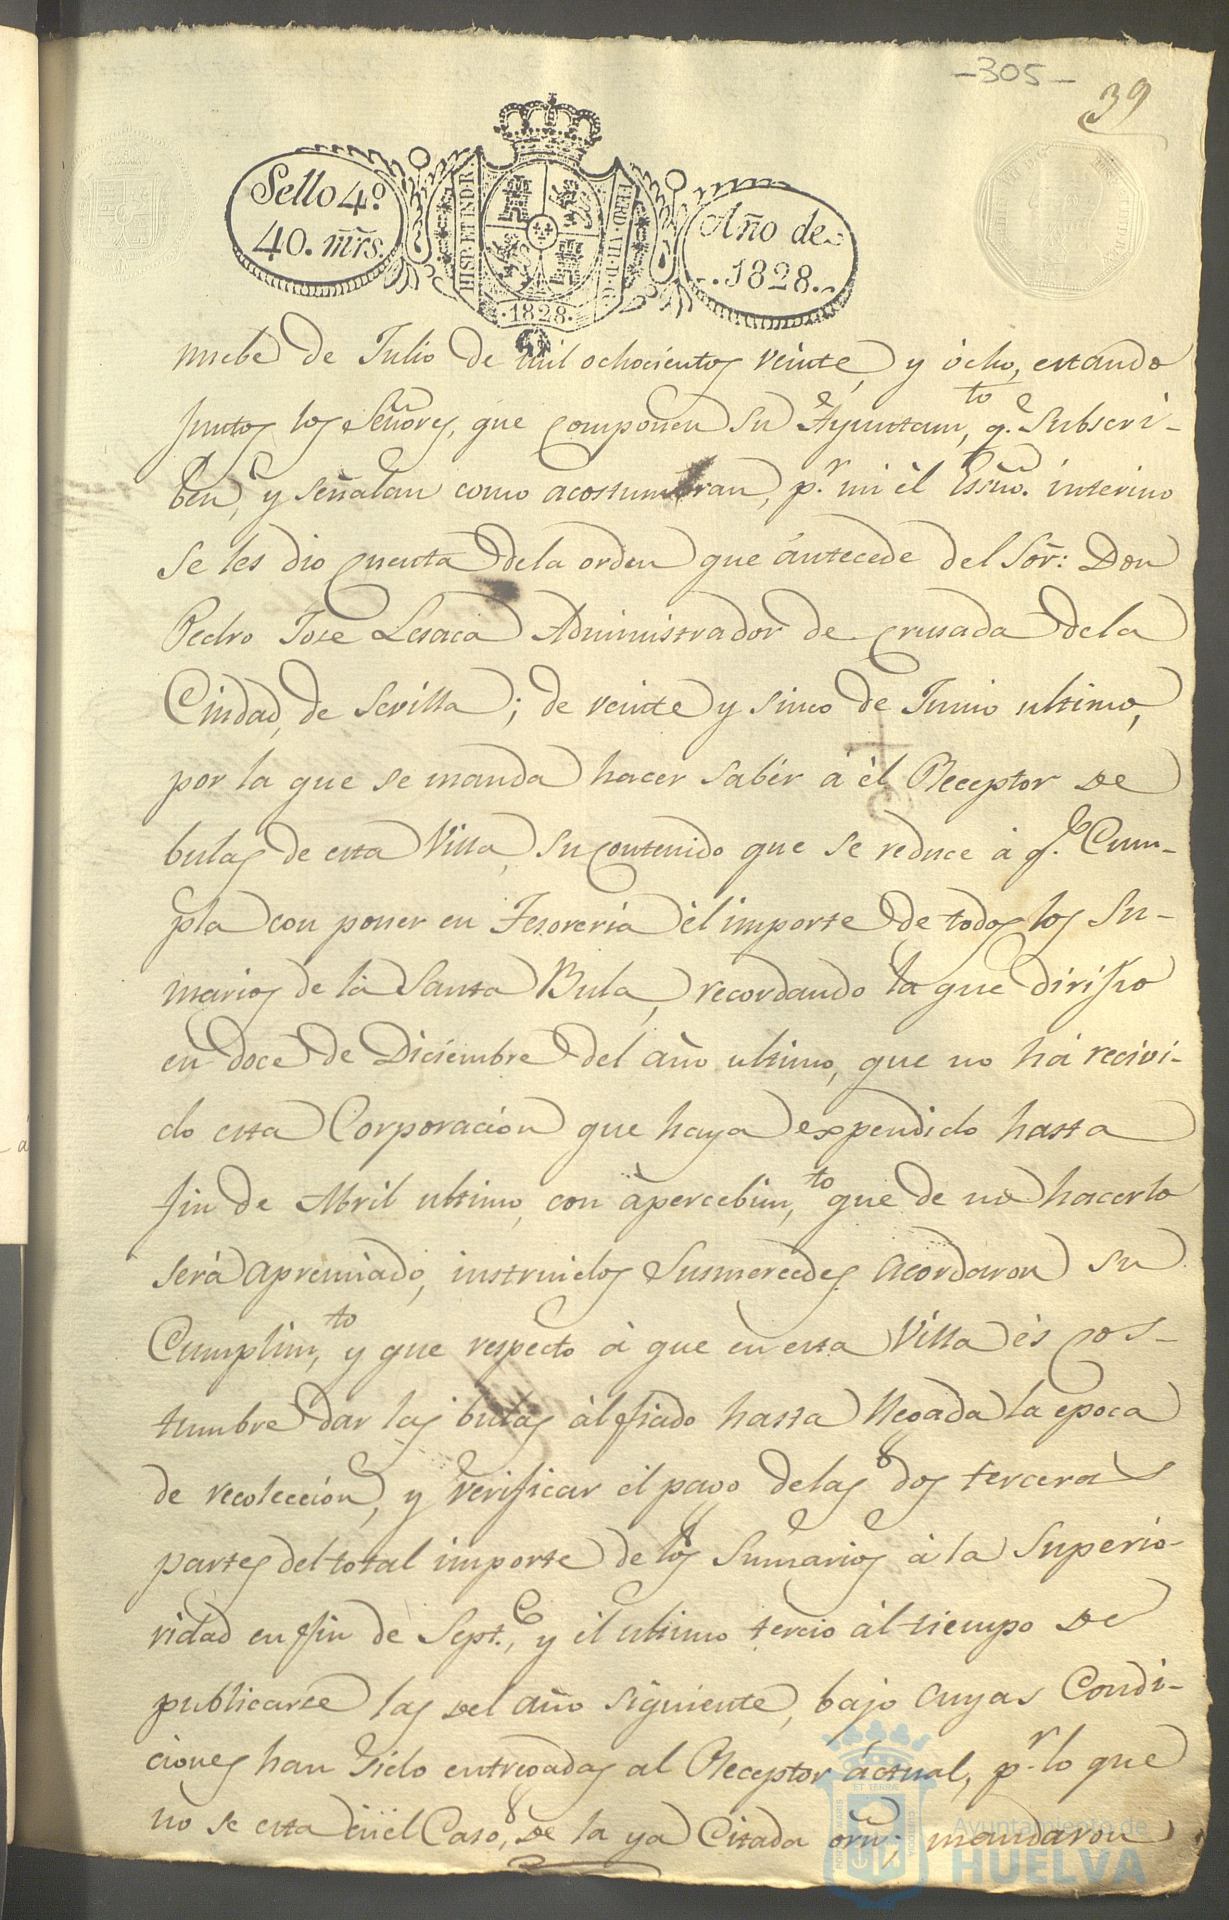 -305-
39
Sello 4º
40. mrs.
HISP. ET IND. R.
FERD. VII. D. G.
Año de
1828.
·1828·
nuebe de Julio de mil ochocientos veinte, y ócho, estando
juntos los Señores, que componen su Ayuntam,to q.e Subscri-
ben, y señalan como acostumbran, p.r mi él Essño. interino
se les dio cuenta dela orden que ántecede del Sor̃: Don
Pedro Jose Lesaca Administrador de Crusada dela
Ciudad, de Sevilla; de veinte y sinco de Junio ultimo,
por la que se manda hacer sabér á él Receptor de
bulas de esta Villa, su contenido que se reduce á q.e Cum-
pla con poner en Tesoreria él importe de todos los Su-
marios de la Santa Bula, recordando la que dirijio
en doce de Diciembre del año ultimo, que no há recivi-
do esta Corporacion que haya expendido hasta
fin de Abril ultimo, con ápercebim,to que de no hacerlo
será apremiado, instruidos Susmercedes acordaron su
Cumplim,to y que respecto á que en esta Villa és cos-
tumbre dar las bulas álfiado hasta llegada la epoca
de recoleccion, y verificar el pago delas dos terceras
partes del total importe de los Sumarios á la Superio-
ridad en fin de Sept.e, y él ultimo tercio ál tiempo de
publicarse las del año siguiente, bajo cuyas Condi-
ciones han sido entregadas al Receptor áctual, p.r lo que
no se esta en el Caso, de la ya Citada orñ; mandaron
Ayuntamiento de
HUELVA